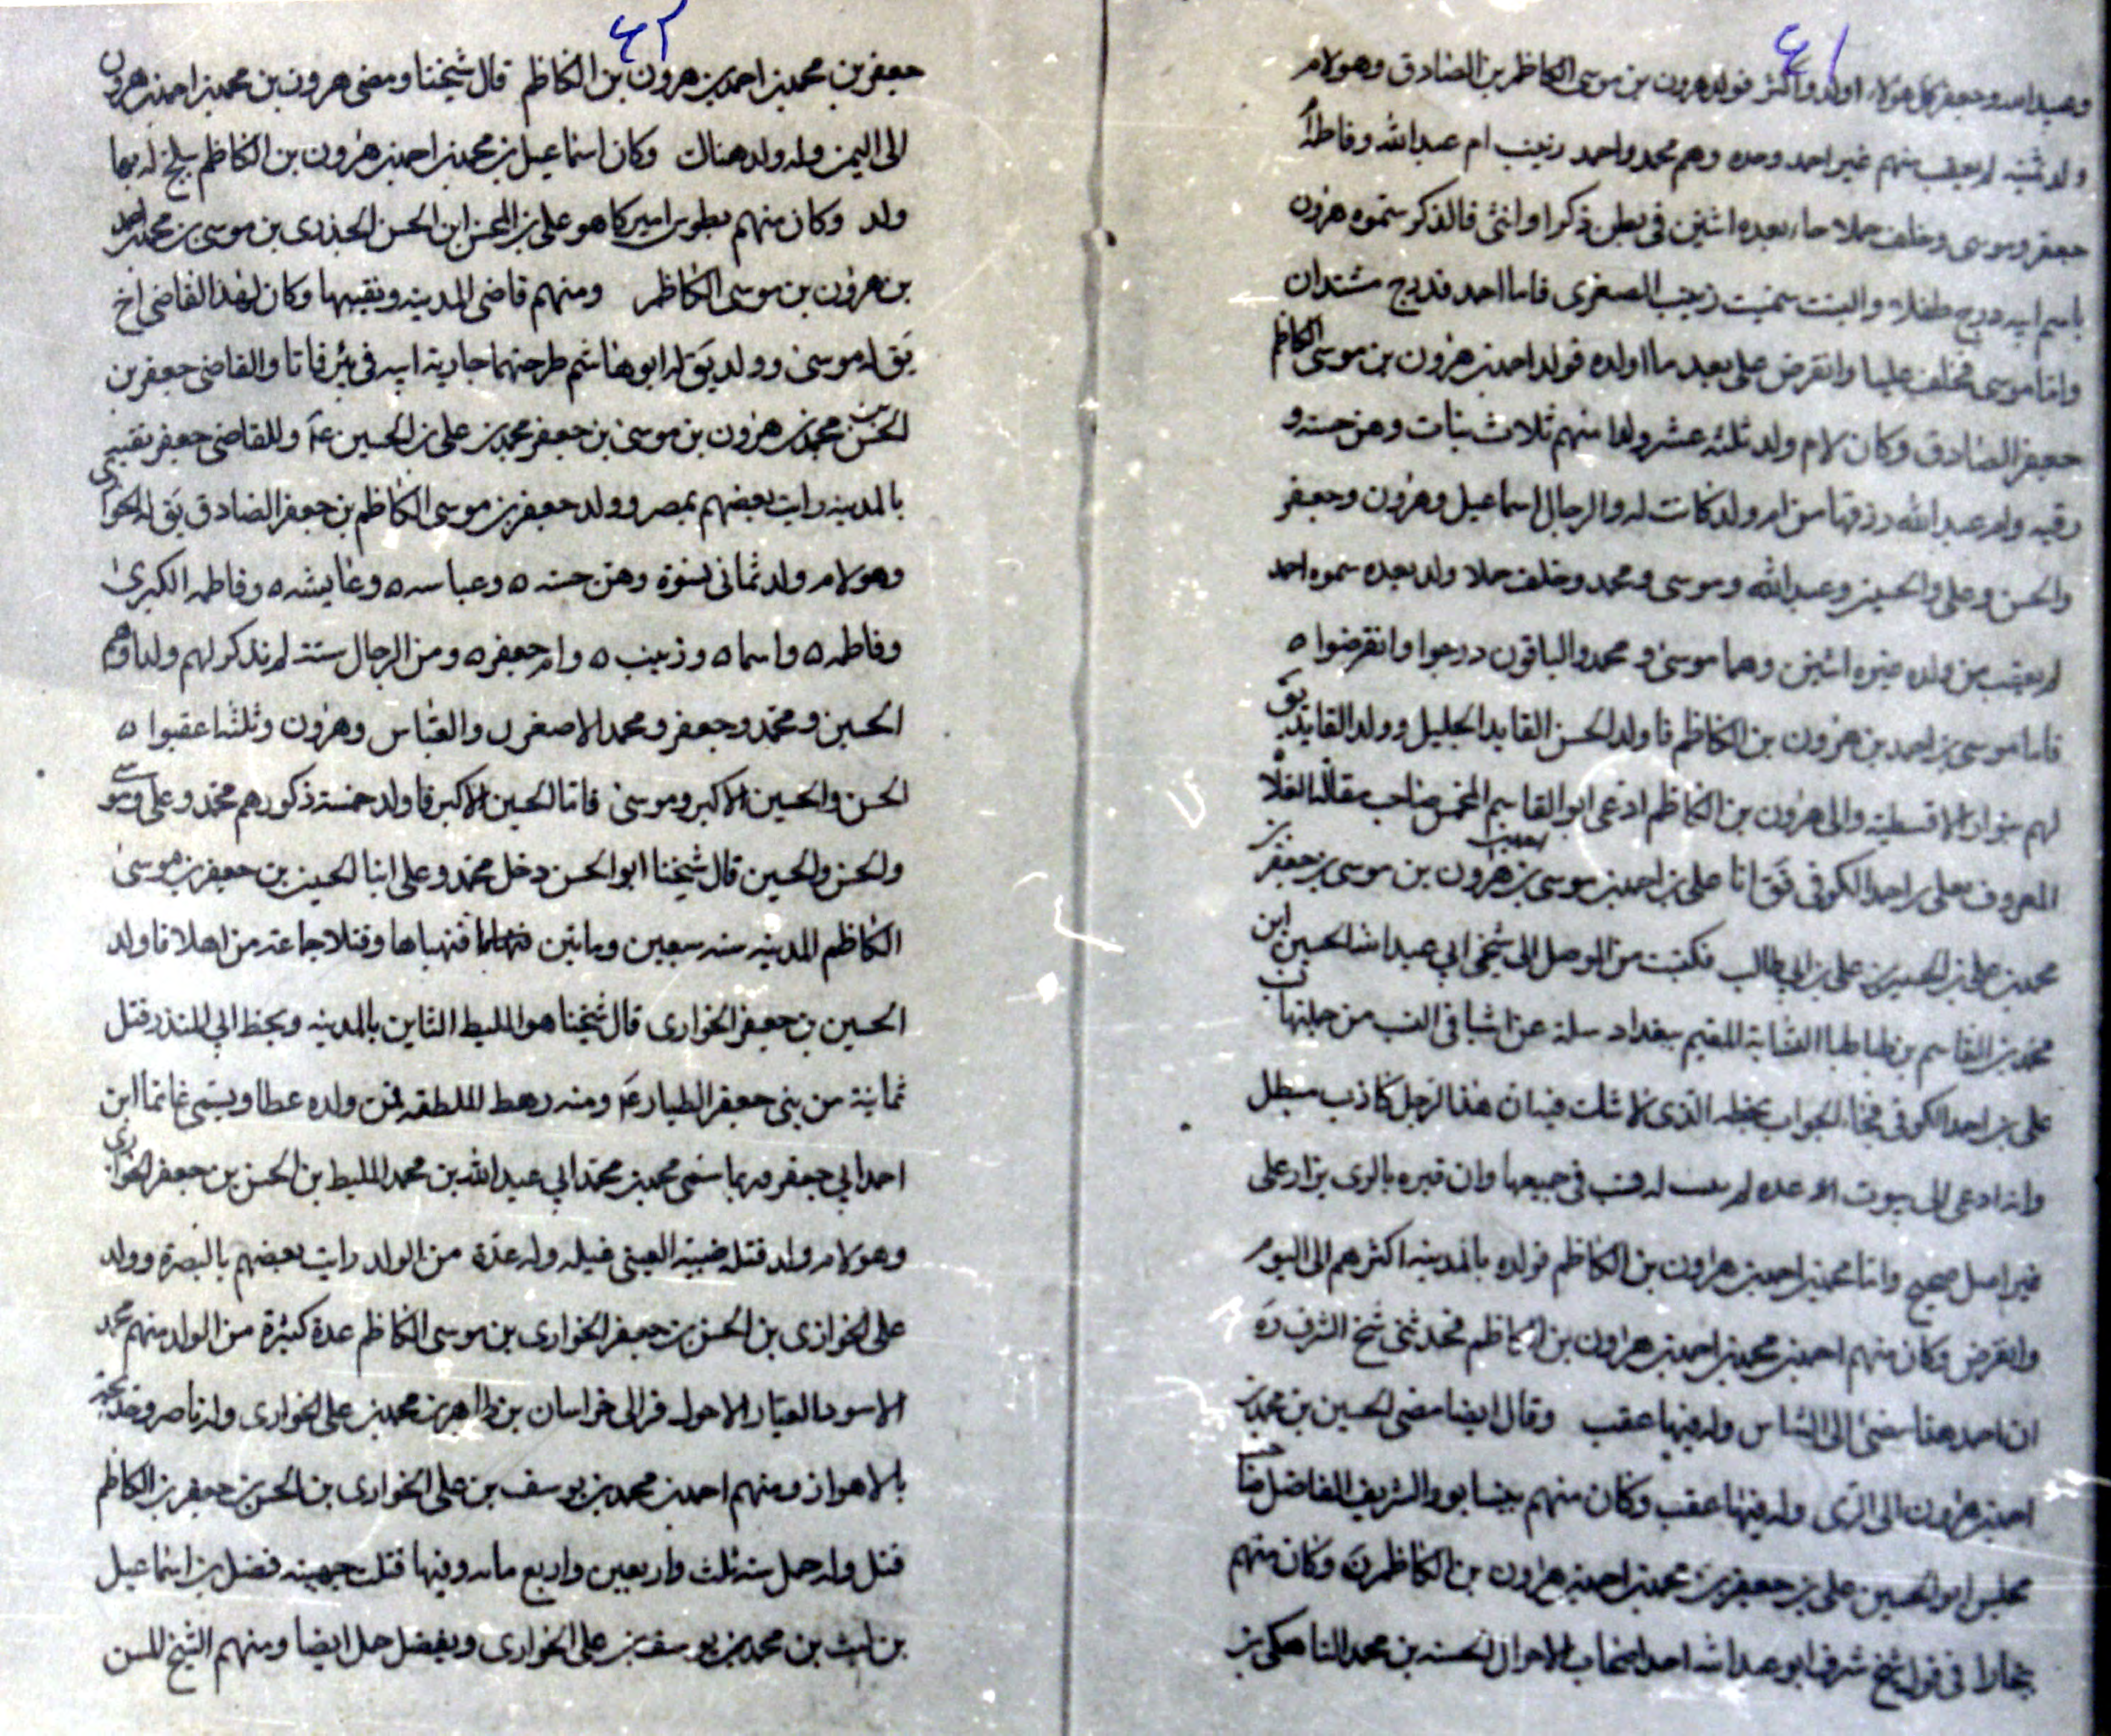 ٤١
وعبيدالله وجعفر كل هؤلاء اولد واكثر فولد هرون بن موسى الكاظم بن الصادق وهو لام
ولد ثمنية لم يعقب منهم غير احمد وحده وهم محمد واحمد زينب ام عبدالله وفاطمة
جعفر وموسى وخلف حملا جاء بعده اثنين في بطن ذكرا وانثى فالذكر سموه هرون
باسم ابيه درج طفلا والبنت سميت زينب الصغرى فاما احمد
واما موسى فخلف عليا وانقرض على بعد ما اولده فولد احمد بن هرون بن موسى الكاظم
جعفر الصادق وكان لام ولد ثلثه عشر ولدا منهم ثلاث بنات وهن حسنه و
رقيه وام عبدالله رزقها من ام ولد كانت له والرجال اسماعيل وهرون وجعفر
والحسن وعلى والحسين وعبدالله وموسى ومحمد وخلف حملا ولد بعده سموه احمد
لم يعقب من ولده غيره اثنين وهما موسى ومحمد والباقون درجوا وانقرضوا ه
فاما موسى بن احمد بن هرون بن الكاظم فاولد الحسن القايد الجليل وولد القايد يق
لهم بنوا الافطسية والى هرون بن الكاظم ادعى ابوالقاسم المخمس صاحب مقالة الغلاة
المعروف بعلى بن احمد الكوفى فق انا على بن احمد بن موسى بن احمد بن هرون بن موسى بن جعفر بن
محمد بن على بن الحسين بن على بن ابي طالب فكتبت من الموصل الى شيخى ابي عبدالله الحسين ابن
محمد بن القاسم بن طباطبا النسابة المقيم ببغداد سله عن اشيا فى النسب من جلتها نسب
على بن احمد الكوفى فجاء الجواب بخطه الذى لا شك فيه ان هذا الرجل كاذب مبطل
وانه ادعى الى بيوت عده لم يثبت له نسب فى جميعها وان قبره بالرى يزار على
غير اصل صحيح واما محمد بن احمد بن هرون بن الكاظم فولده بالمدينه اكثرهم الى اليوم
وانقرض وكان منهم احمد بن محمد بن احمد بن هرون بن الكاظم فحدثنى شيخ الشرف ره
ان احمد هذا مضى الى الشاس وله فيها عقب وقال ايضا مضى الحسين بن محمد بن
احمد بن هرون الى الرى وله فيها عقب وكان منهم بنيسابور الشريف الفاضل صاحب
مجلس ابوالحسين على بن جعفر بن محمد بن احمد بن هرون بن الكاظم ره وكان منهم
بخارا فى قول شيخ شرف ابو عبدالله احمد الحسنه بن محمد بن
٤٢
جعفر بن محمد بن احمد بن هرون بن الكاظم قال شيخنا ومضى هرون بن محمد بن احمد بن هرون
الى اليمن وله ولد هناك وكان اسماعيل بن محمد بن احمد بن هرون بن الكاظم ببلخ له بها
ولد وكان منهم بطوس اميركا هو على بن المحسن ابن الحسن الجندى بن موسى بن محمد بن احمد
بن هرون بن موسى الكاظم ومنهم قاضى المدينه ونقيبها وكان لهذا القاضى اخ
يق له موسى وولد يق له ابو هاشم طرحتهما جارية ابيه فى بئر فاتا والقاضى جعفر بن
الحسن بن محمد بن هرون بن موسى بن جعفر محمد بن على بن الحسين عم وللقاضى جعفر بقيه
بالمدينه رايت بعضهم بمصر وولد جعفر بن موسى الكاظم بن جعفر الصادق يق له الخوارى
وهو لام ولد ثمانى نسوة وهن حسنه ه وعباسه ه وعايشه ه وفاطمه الكبرى
وفاطمه ه واسما ه وزينب ه وام جعفر ه ومن الرجال ستة لم نذكر لهم ولدا وهم
الحسين ومحمد وجعفر ومحمد الاصغر والعباس وهرون وثلثة اعقبوا ه
الحسن والحسين الاكبر وموسى فاما الحسين الاكبر فاولد خمسة ذكور هم محمد وعلى وموسى
والحسن والحسين قال شيخنا ابوالحسن دخل محمد وعلى ابنا الحسين بن جعفر بن موسى
الكاظم المدينه سنه سبعين وماتين فنهباها وقتلا جماعة من اهلا فاولد
الحسين بن جعفر الخوارى قال شيخنا هو المليط الثاير بالمدينه وبخط ابي المنذر قتل
ثمانية من بنى جعفر الطيار عم ومنه رهط الملطه فمن ولده عطا ويسمى غانما ابن
احمد ابي جعفر وربما سمى محمد بن محمد ابي عبدالله بن محمد المليط بن الحسن بن جعفر الخوارى
وهو لام ولد قتله ضبة العينى غيله وله عدة من الولد رايت بعضهم بالبصرة وولد
على الخوارى بن الحسن بن جعفر الخوارى بن موسى الكاظم عدة كثيرة من الولد منهم محمد
الاسود العيار الاحول فر الى خراسان بن طاهر بن محمد بن على الخوارى وله ناصر
بالاهواز ومنهم احمد بن محمد بن يوسف بن على الخوارى بن الحسن بن جعفر بن الكاظم
قتل وله حمل سنه ثلث واربعين واربع مائه وفيها قتلت جهينه فضل بن اسماعيل
بن ليث بن محمد بن يوسف بن على الخوارى وبفضل حمل ايضا ومنهم الشيخ المسن